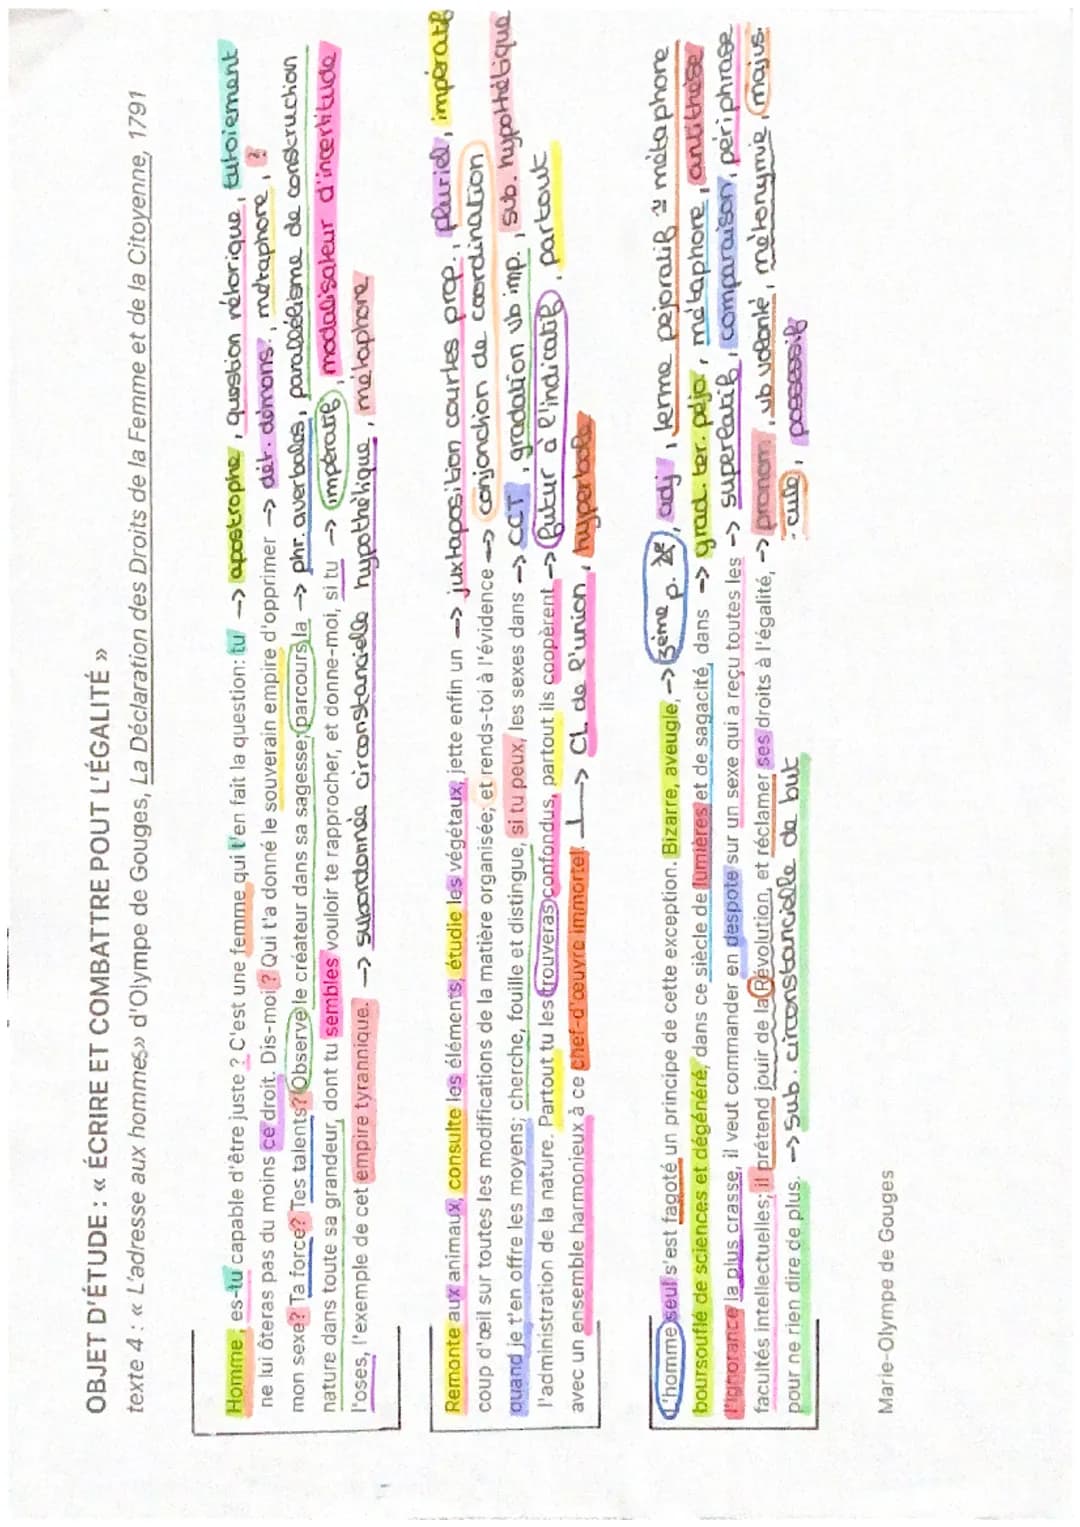 OBJET D'ÉTUDE : « ÉCRIRE ET COMBATTRE POUT L'ÉGALITÉ »
texte 4 : « L'adresse aux hommes» d'Olympe de Gouges, La Déclaration des Droits de la Femme et de la Citoyenne, 1791
Homme, es-tu capable d'être juste ? C'est une femme qui t'en fait la question: tu -> apostrophe, question rétorique, tutoiement
ne lui ôteras pas du moins ce droit. Dis-moi? Qui t'a donné le souverain empire d'opprimer -> dét. démons., métaphore, ?
mon sexe? Ta force? Tes talents? Observe le créateur dans sa sagesse; parcours la -> phr. averbales, parallélisme de construction
nature dans toute sa grandeur, dont tu sembles vouloir te rapprocher, et donne-moi, si tu -> impératif, modalisateur d'incertitude
l'oses, l'exemple de cet empire tyrannique. -> subordonnée circonstancielle hypothétique, métaphore
Remonte aux animaux, consulte les éléments, étudie les végétaux, jette enfin un -> juxtaposition courtes prop., pluriel, impératif
coup d'œil sur toutes les modifications de la matière organisée; et rends-toi à l'évidence -> conjonction de coordination
quand je t'en offre les moyens; cherche, fouille et distingue, si tu peux, les sexes dans -> CCT, gradation vb imp., sub. hypothétique
l'administration de la nature. Partout tu les trouveras confondus, partout ils coopèrent -> futur de l'indicatif, partout
avec un ensemble harmonieux à ce chef-d'œuvre immortel. -> CL de l'union, hyperbole
L'homme seul s'est fagoté un principe de cette exception. Bizarre, aveugle, -> 3ème p., adj, terme péjoratif métaphore
boursouflé de sciences et dégénéré, dans ce siècle de lumières et de sagacité, dans -> grad. ter. péjo, métaphore, antithèse
l'ignorance la plus crasse, il veut commander en despote sur un sexe qui a reçu toutes les -> superlatif, comparaison, périphrase
facultés intellectuelles; il prétend jouir de la Révolution, et réclamer ses droits à l'égalité, -> pronom, vb volonté, métonymie, majus.
cule, possessif
pour ne rien dire de plus. -> sub. circonstancielle de but
Marie-Olympe de Gouges